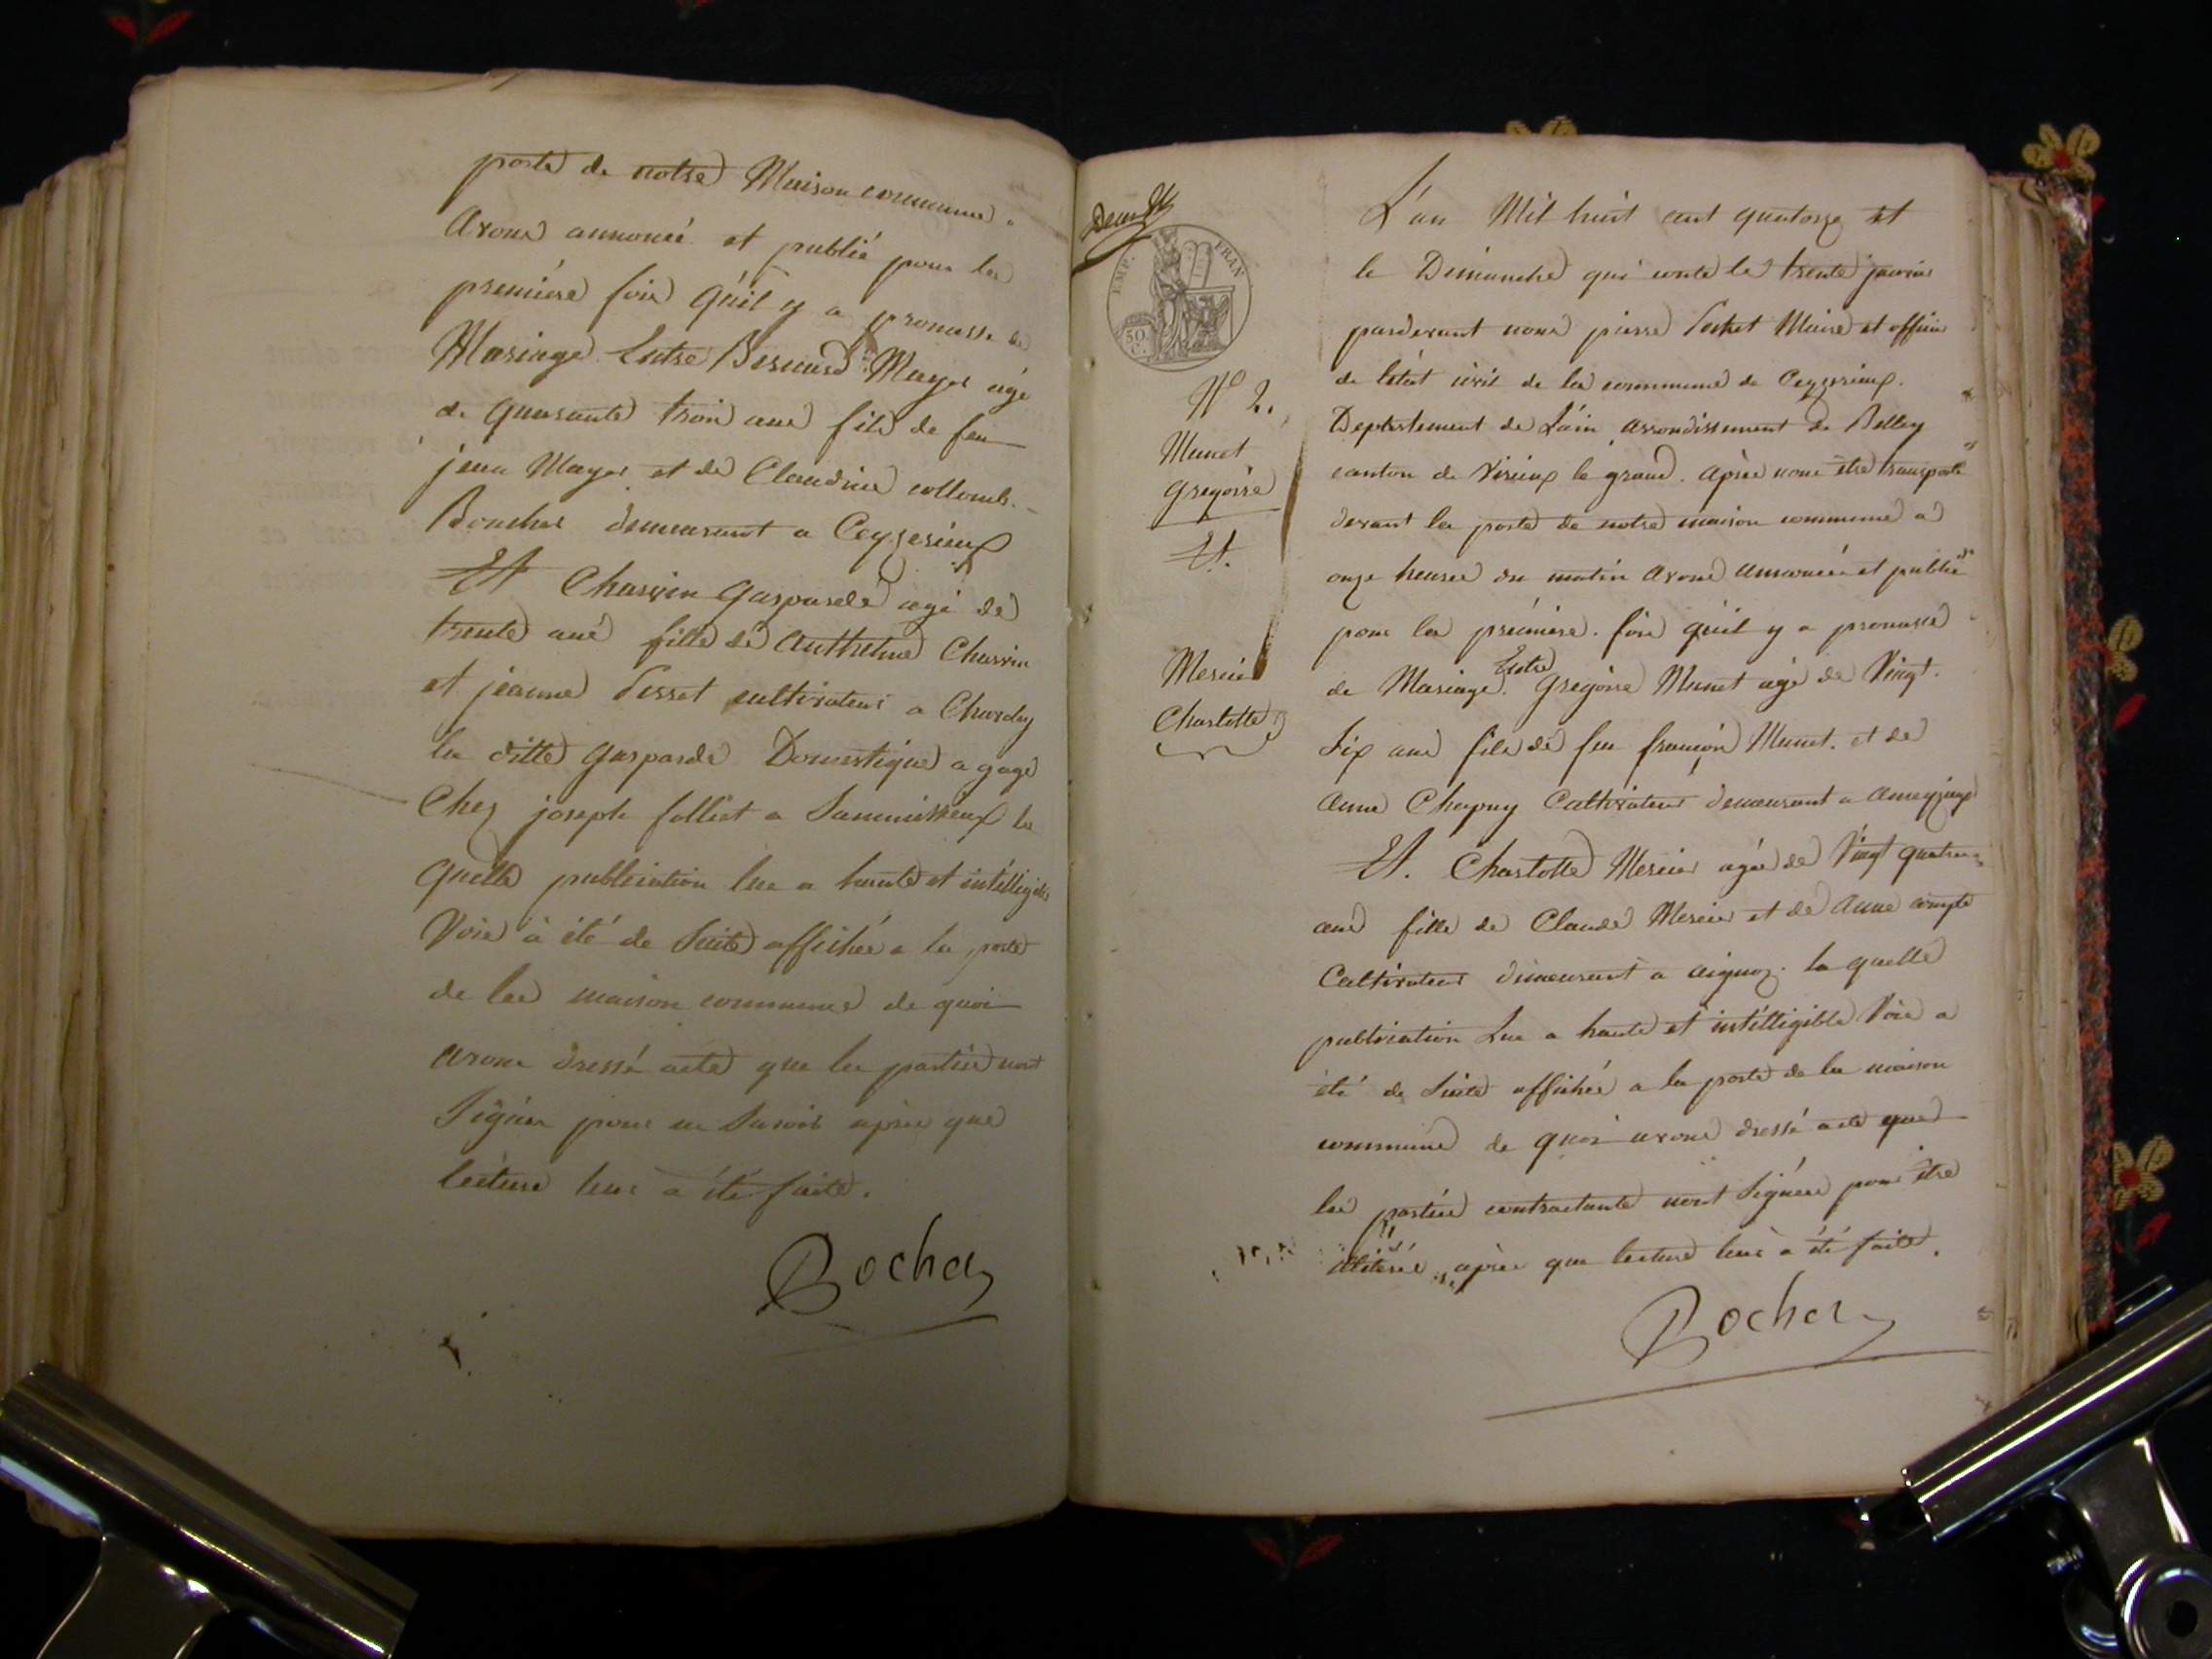 porte de notre Maison commune.
avons annoncé et publié pour la
première fois qu'il y a promesse de
Mariage Entre Bernard Mayer agé
de quarante trois ans fils de feu
jean Mayer et de Claudine collomb-
Bouchet demeurant a Ceyzerieux
Et Charvin Gasparde agé de
trente ans fille de Anthelme Charvin
et jeanne Perret cultivateur a
la ditte Gasparde Domestique a gage
Chez joseph folliet a la
quelle publication lue a haute et intelligible
Voix à été de Suite affichée a la porte
de la maison commune de quoi
avons dressé acte que les parties nont
Signer pour ne Savoir après que
lecture leur a été faite.
Rochet
Deux
EMP. FRAN
50 C.
N° 2.
Munet
Gregoire
Et.
Mercier
Charlotte
L'an Mil huit cent quatorze et
le Dimanche qui conte le trente janvier
pardevant nous pierre Rochet Maire et officier
de létat civil de la commune de Ceyzerieux.
Departement de Lain arrondissement de Belley
canton de Virieux le grand. après nous etre transporté
devant la porte de notre maison commune a
onze heures du matin avons annoncée et publié
pour la première. fois qu'il y a promesse
de Mariage. Entre Gregoire Munet agé de Vingt.
Six ans fils de feu françois Munet. et de
anne Chapuy Caltivateur demeurant a ameyzieux
Et. Charlotte Mercier agée de Vingt quatre
ans fille de Claude Mercier et de anne compte
Caltivateur demeurant a aignoz. la quelle
publication Lue a haute et intelligible Voix a
été de Suite affichée a la porte de la maison
commune de quoi avons dressé acte que
les parties contractante nont Signées pour être
iliterés après que lecture leur a été faite.
Rochet